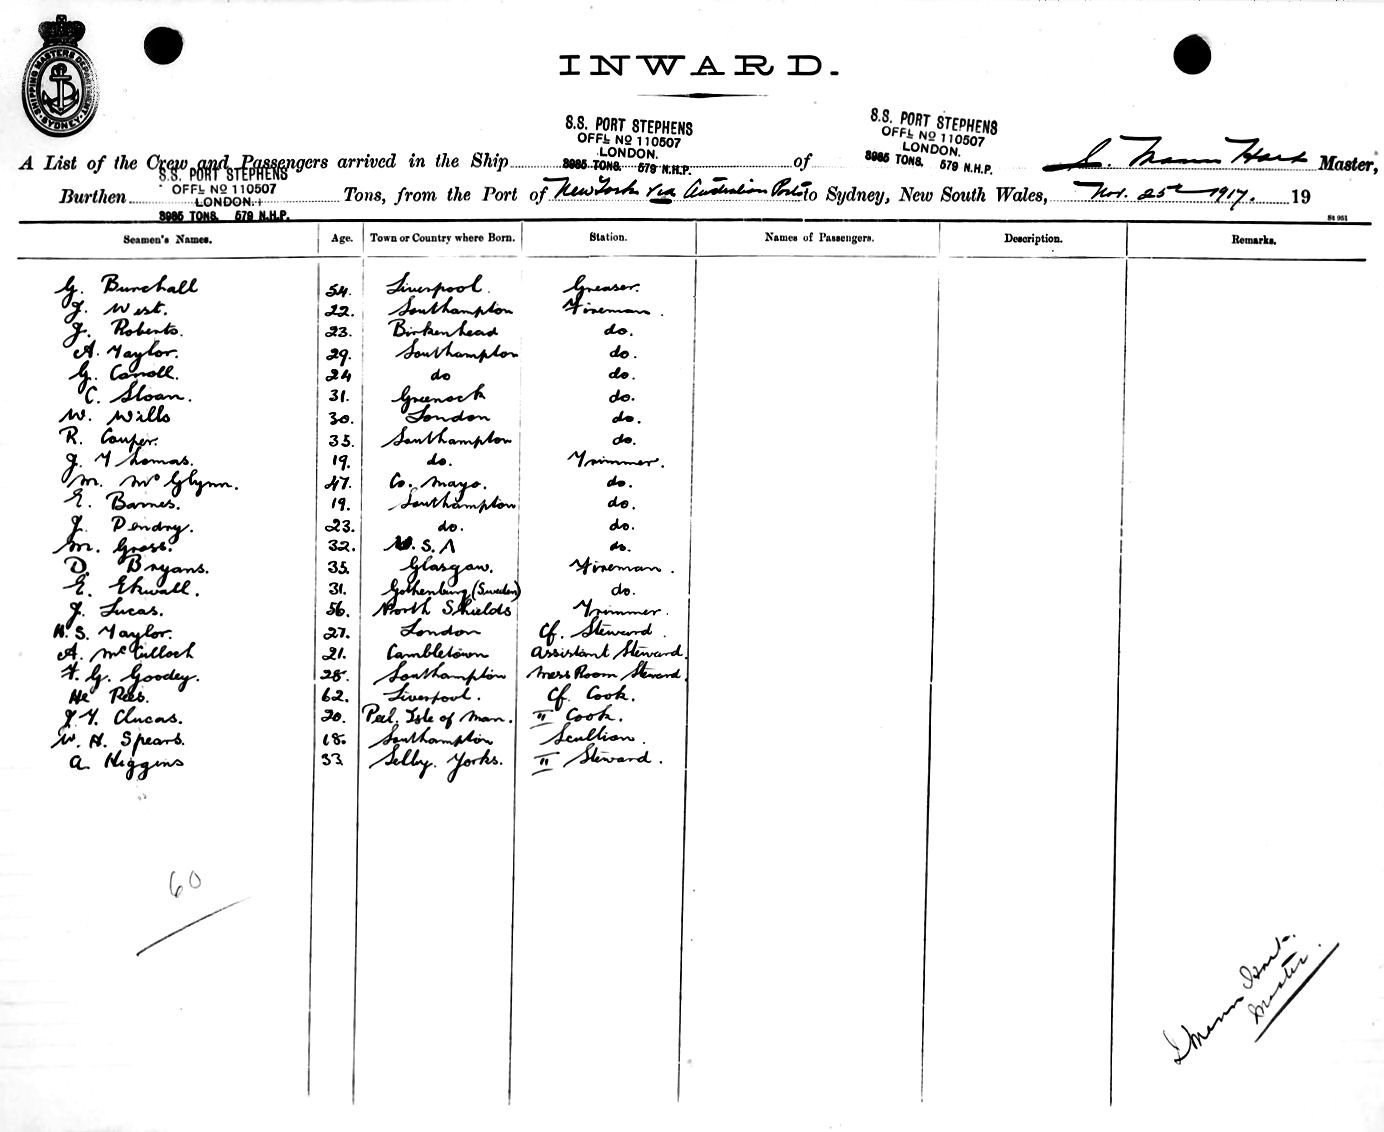 SHIPPING MASTERS DEPARTMENT SYDNEY
INWARD.
S.S. PORT STEPHENS
OFFL No 110507
LONDON.
3985 TONS. 579 N.H.P.
S.S. PORT STEPHENS
OFFL No 110507
LONDON.
3985 TONS. 579 N.H.P.
A List of the Crew and Passengers arrived in the Ship of Mann Hart Master,
S.S. PORT STEPHENS
OFFL No 110507
LONDON.
3985 TONS. 579 N.H.P.
Burthen Tons, from the Port of New York via Australian Ports to Sydney, New South Wales, Nov. 25th 1917. 19
St 951
Seamen's Names. Age. Town or Country where Born. Station. Names of Passengers. Description. Remarks.
G. Burchall 54. Liverpool. Greaser.
J. West. 22. Southampton Fireman.
J. Roberts. 23. Birkenhead do.
A. Taylor. 29. Southampton do.
G. Carroll. 24 do do.
C. Sloan. 31. Greenock do.
W. Wills 30. London do.
R. Couper. 35. Southampton do.
J. Thomas. 19. do. Trimmer.
M. McGlynn. 47. Co. Mayo. do.
E. Barnes. 19. Southampton do.
J. Pendry. 23. do. do.
M. Gross. 32. U.S.A do.
D. Bryans. 35. Glasgow. Fireman.
E. Ekwall. 31. Gothenburg (Sweden) do.
J. Lucas. 56. North Shields Trimmer.
H. S. Taylor. 27. London Cf. Steward.
A. McCulloch 21. Cambletown Assistant Steward.
F. G. Goodey. 28. Southampton Mess Room Steward.
Rees. 62. Liverpool. Cf. Cook.
J. T. Clucas. 20. Peel. Isle of Man. II Cook.
W. H. Spears. 18. Southampton Scullion.
A. Higgins 33. Selby. Yorks. II Steward.
60
Mann Hart.
Master.